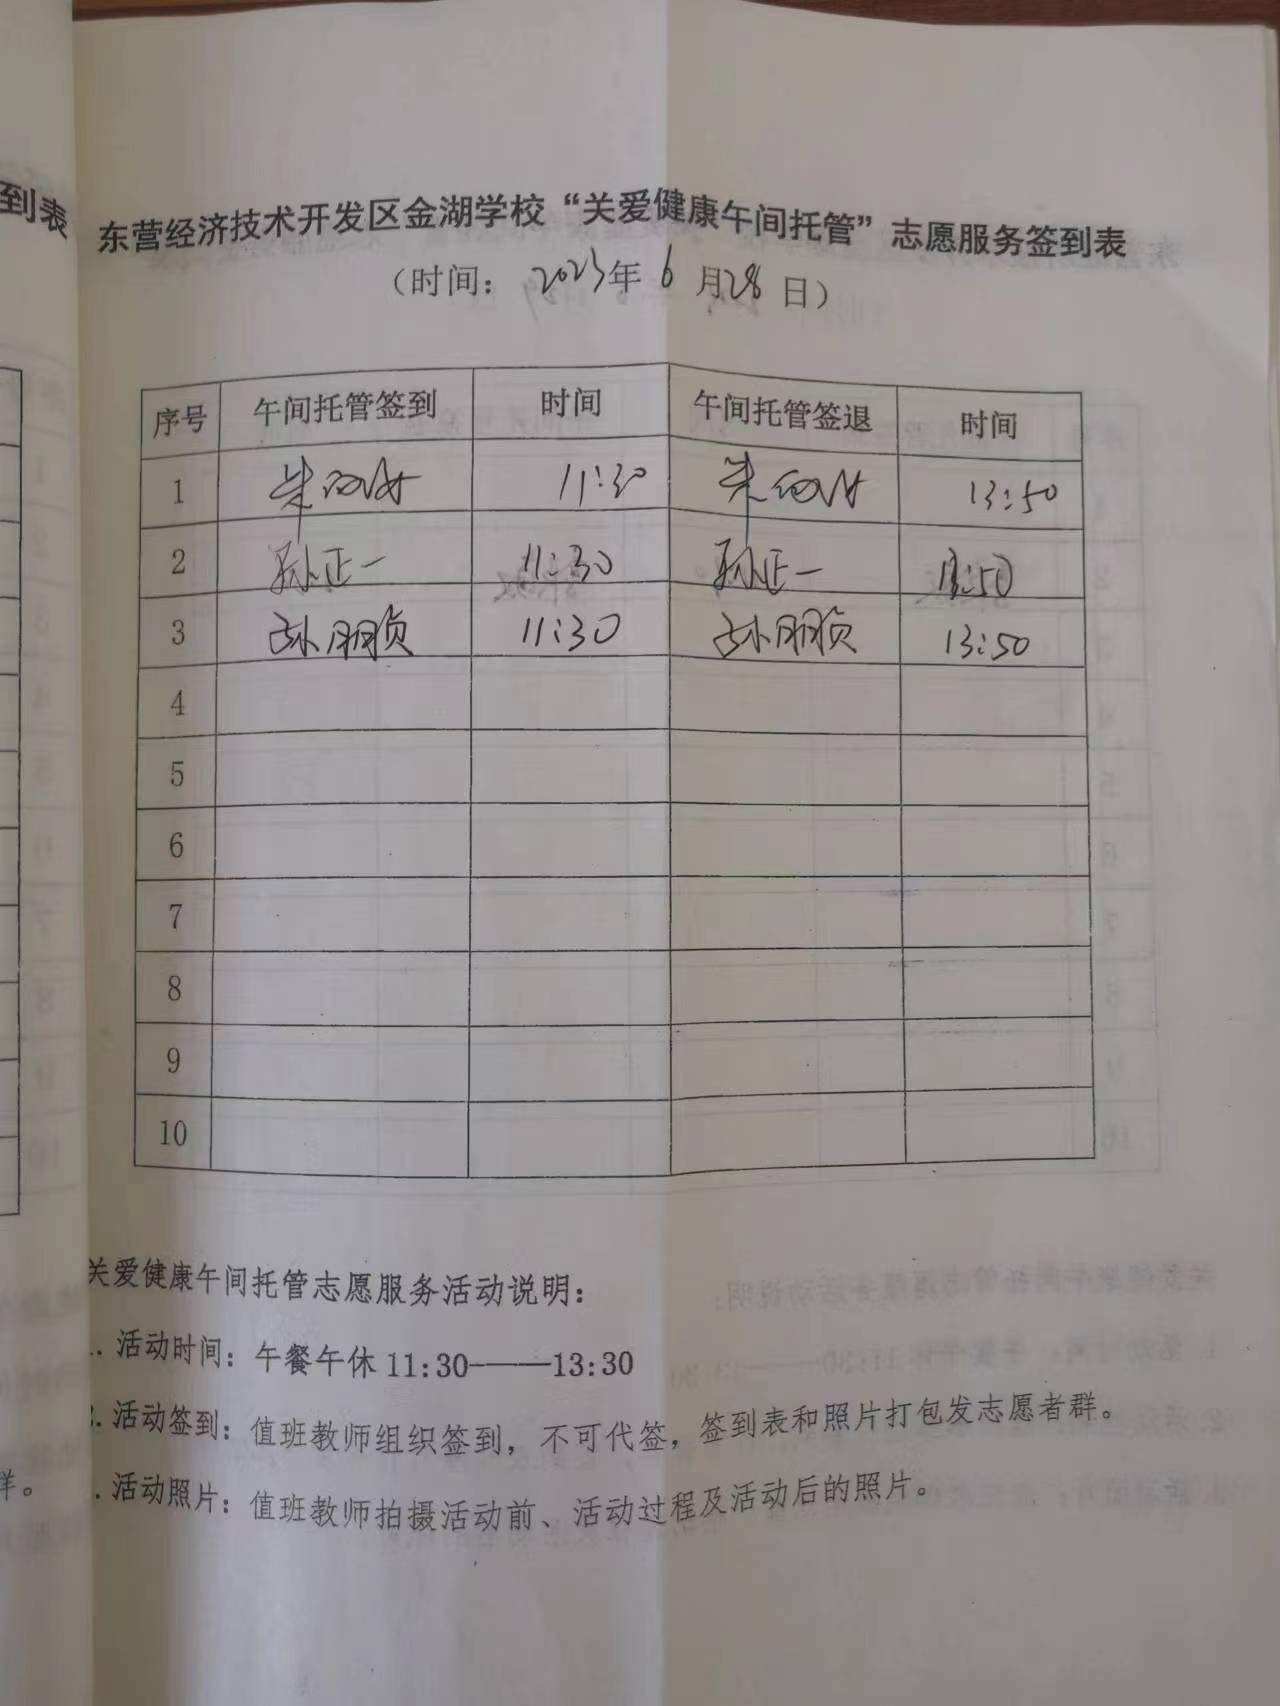 到表
东营经济技术开发区金湖学校“关爱健康午间托管”志愿服务签到表
（时间：2023年6月28日）
序号 午间托管签到 时间 午间托管签退 时间
1 11:30 13:50
2 孙正一 11:30 孙正一 13:50
3 孙朋贞 11:30 孙朋贞 13:50
4
5
6
7
8
9
10
关爱健康午间托管志愿服务活动说明：
. 活动时间：午餐午休 11:30——13:30
. 活动签到：值班教师组织签到，不可代签，签到表和照片打包发志愿者群。
. 活动照片：值班教师拍摄活动前、活动过程及活动后的照片。
群。